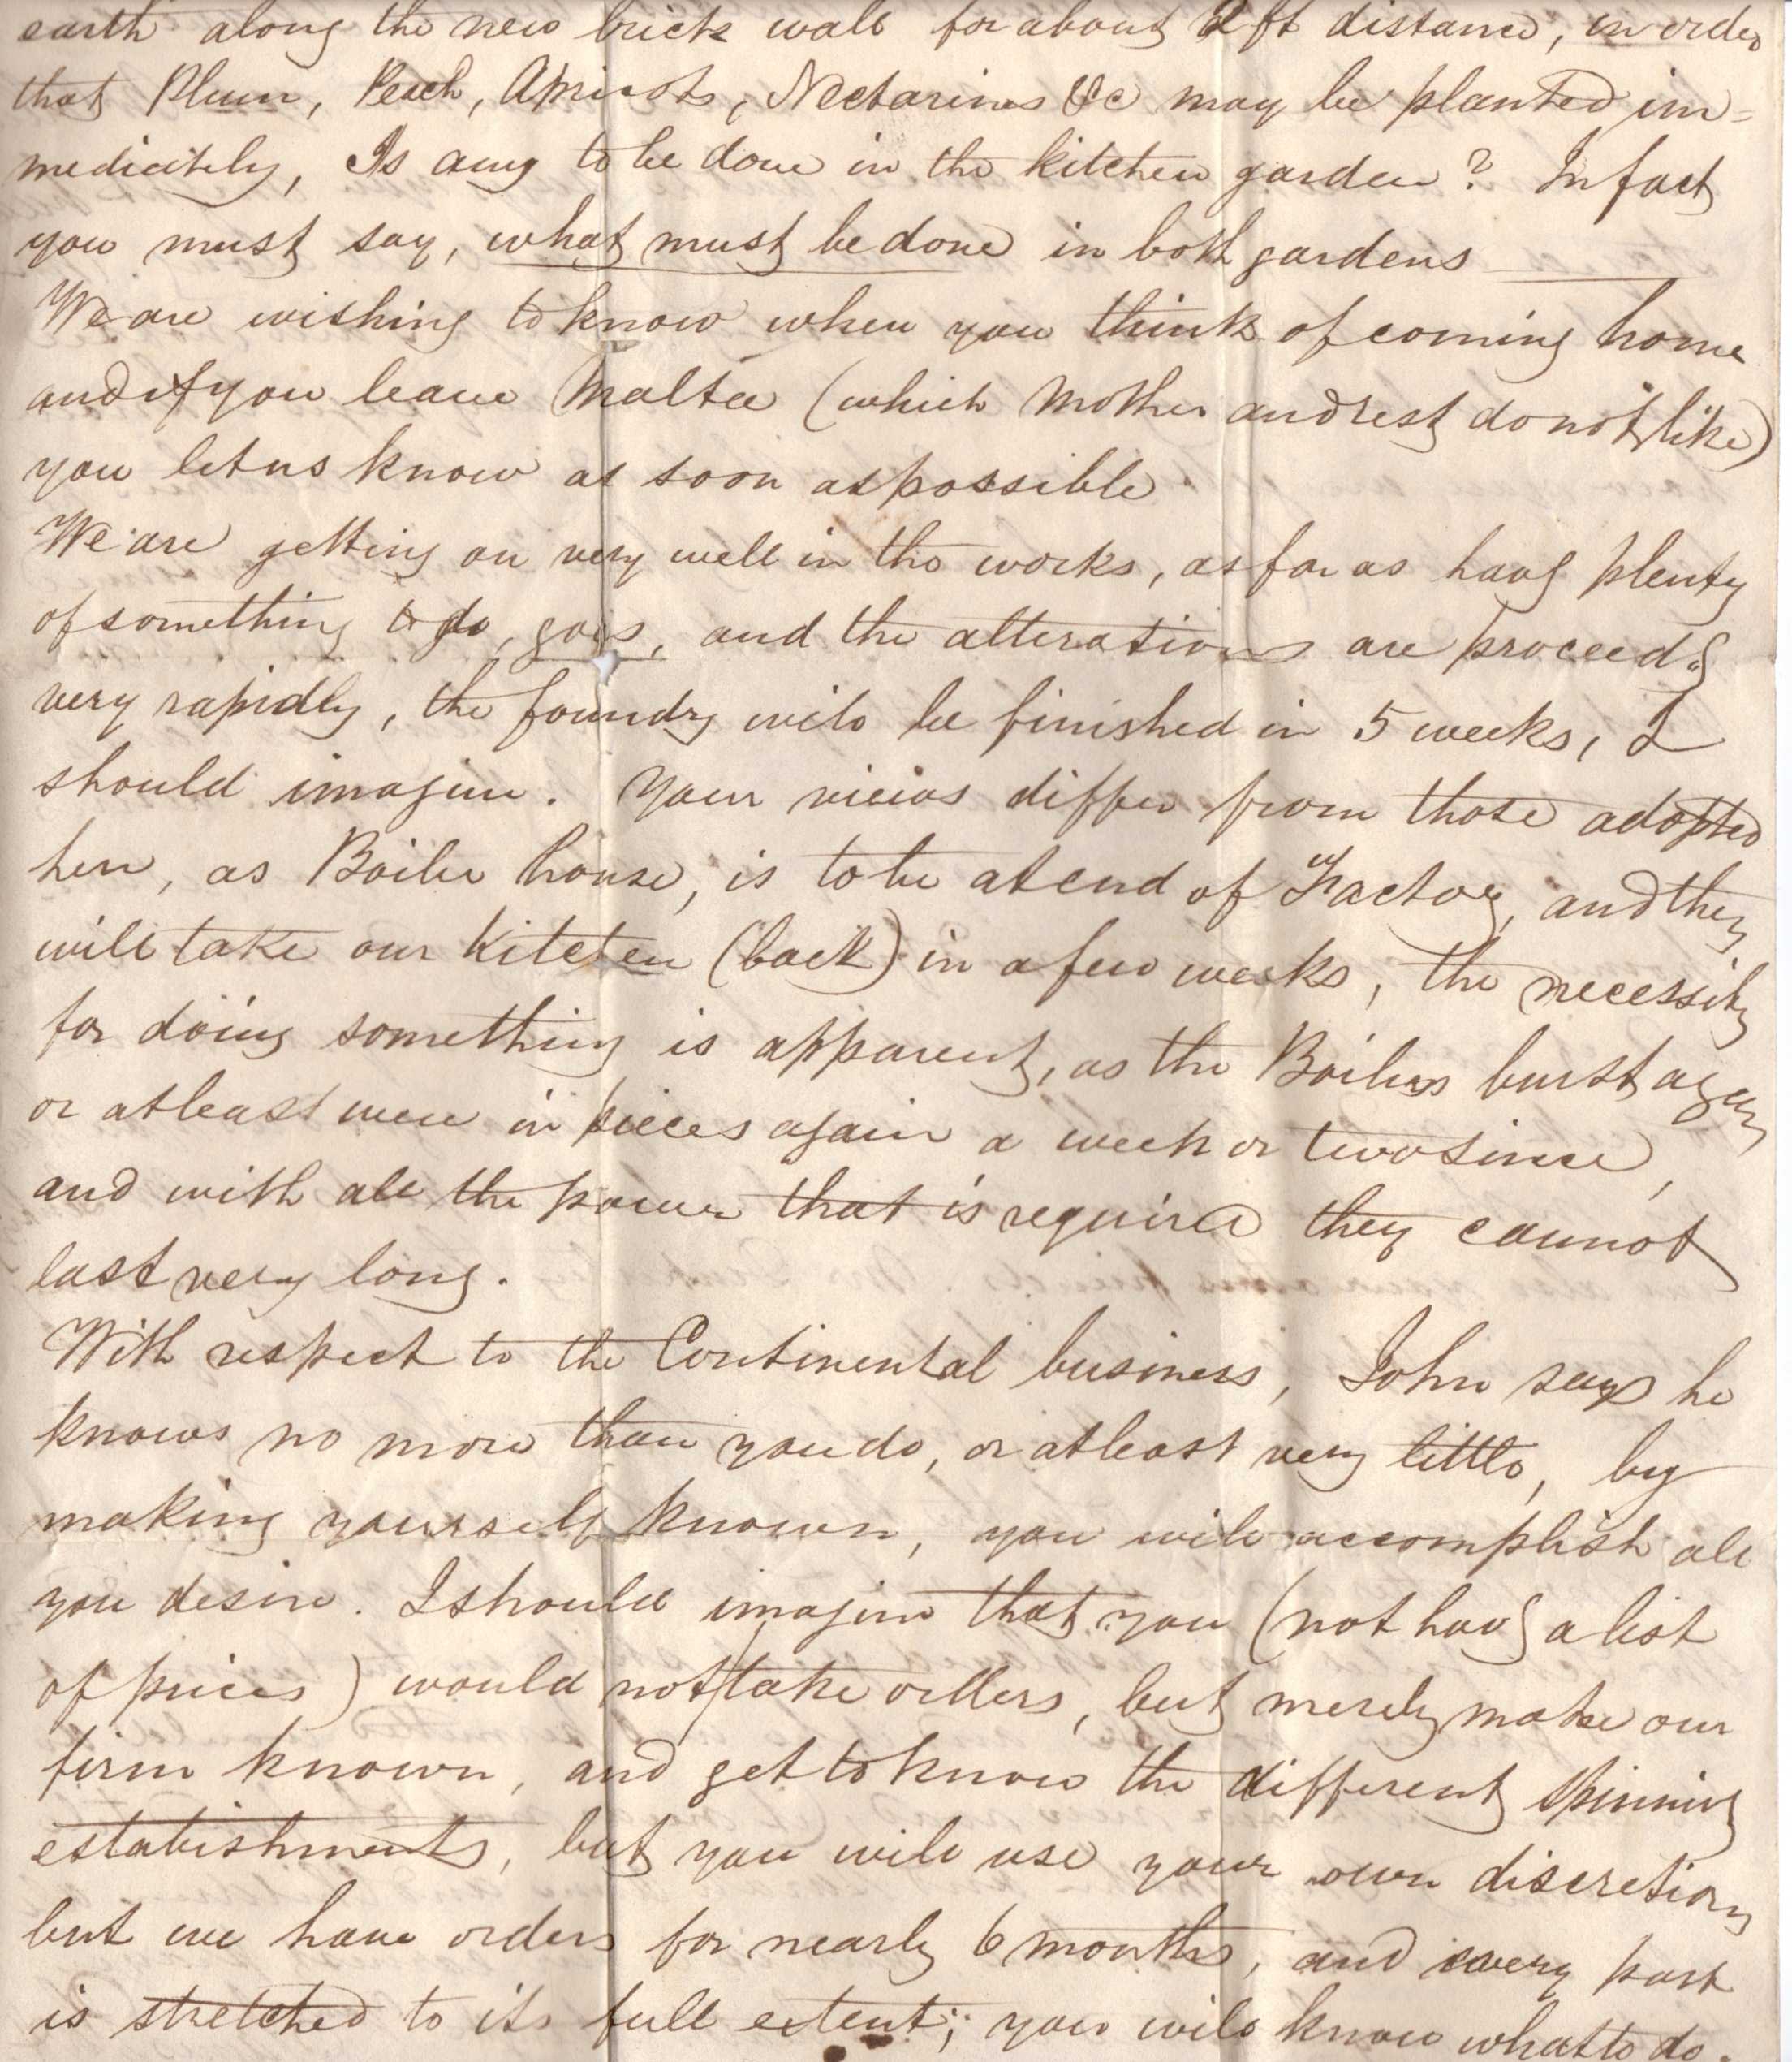 earth along the new brick wall for about 2 ft distance, in order
that Plum, Peach, Apricots, Nectarines &c may be planted im=
mediately, Is any to be done in the kitchen garden? In fact
you must say, what must be done in both gardens
We are wishing to know when you think of coming home
and if you leave Malta (which Mother and rest do not like)
you let us know as soon as possible
We are getting on very well in the works, as far as havg plenty
of something to do, goes, and the alterations are proceedg
very rapidly, the foundry will be finished in 5 weeks, I
should imagine. Your views differ from those adopted
here, as Boiler house, is to be at end of Factory, and they
will take our Kitchen (back) in a few weeks, the necessity
for doing something is apparent, as the Boilers burst again
or at least were in pieces again a week or two since,
and with all the power that is required they cannot
last very long.
With respect to the Continental business, John says he
knows no more than you do, or at least very little, by
making yourself known, you will accomplish all
you desire. I should imagine that you (not havg a list
of prices) would not take orders, but merely make our
firm known, and get to know the different spinning
establishments, but you will use your own discretion
but we have orders for nearly 6 months, and every part
is stretched to its full extent; you will know what to do.